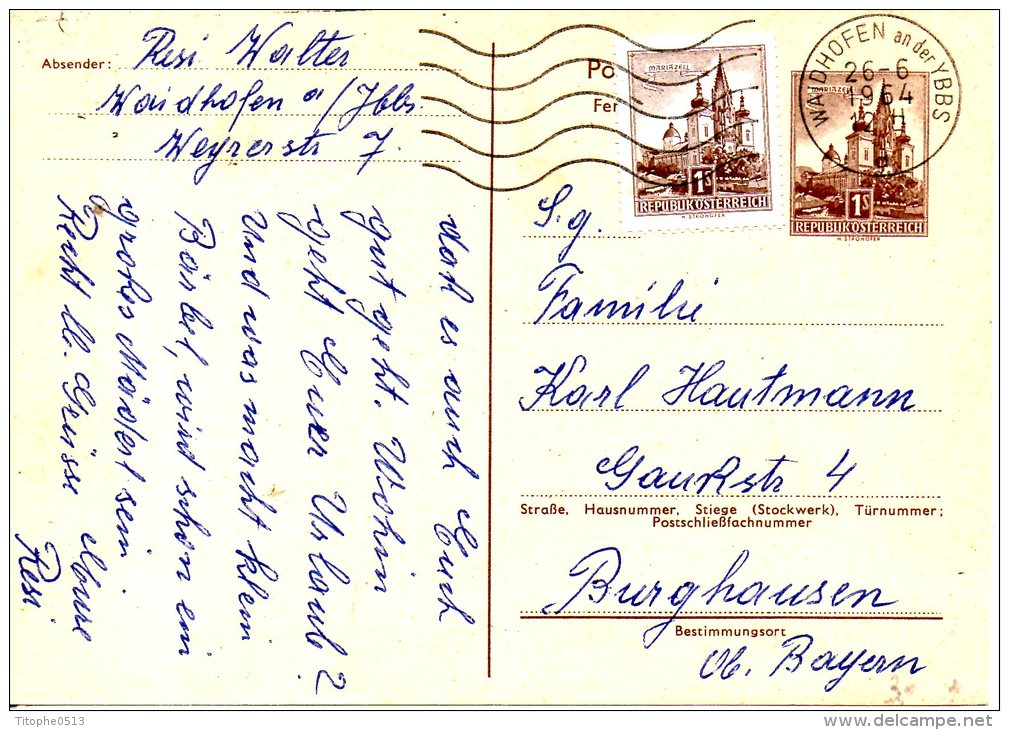 Absender: Resi Walter
Waidhofen a/Ybbs.
Weyrerstr 7.
Po
Fer
MARIAZELL
1S
REPUBLIK ÖSTERREICH
H. STROHOFER
MARIAZELL
1S
REPUBLIK ÖSTERREICH
H. STROHOFER
WAIDHOFEN an der YBBS
26-6
1964
S. g.
Familie
Karl Hautmann
4
Straße, Hausnummer, Stiege (Stockwerk), Türnummer;
Postschließfachnummer
Burghausen
Bestimmungsort
Ob. Bayern
daß es auch Euch
gut geht. Wohin
geht Euer Urlaub?
Und was macht klein
Bärbel, wird schon ein
großes Mäderl sein.
Recht lb. Grüsse Eure
Resi
Titophe0513
delcampe.net